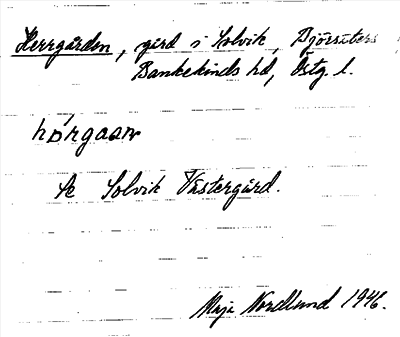 Herrgården, gård i Solvik, Björsäters
Bankekinds hd, Östg. l.
hørgaən
Se Solvik Västergård.
Maja Nordlund 1946.